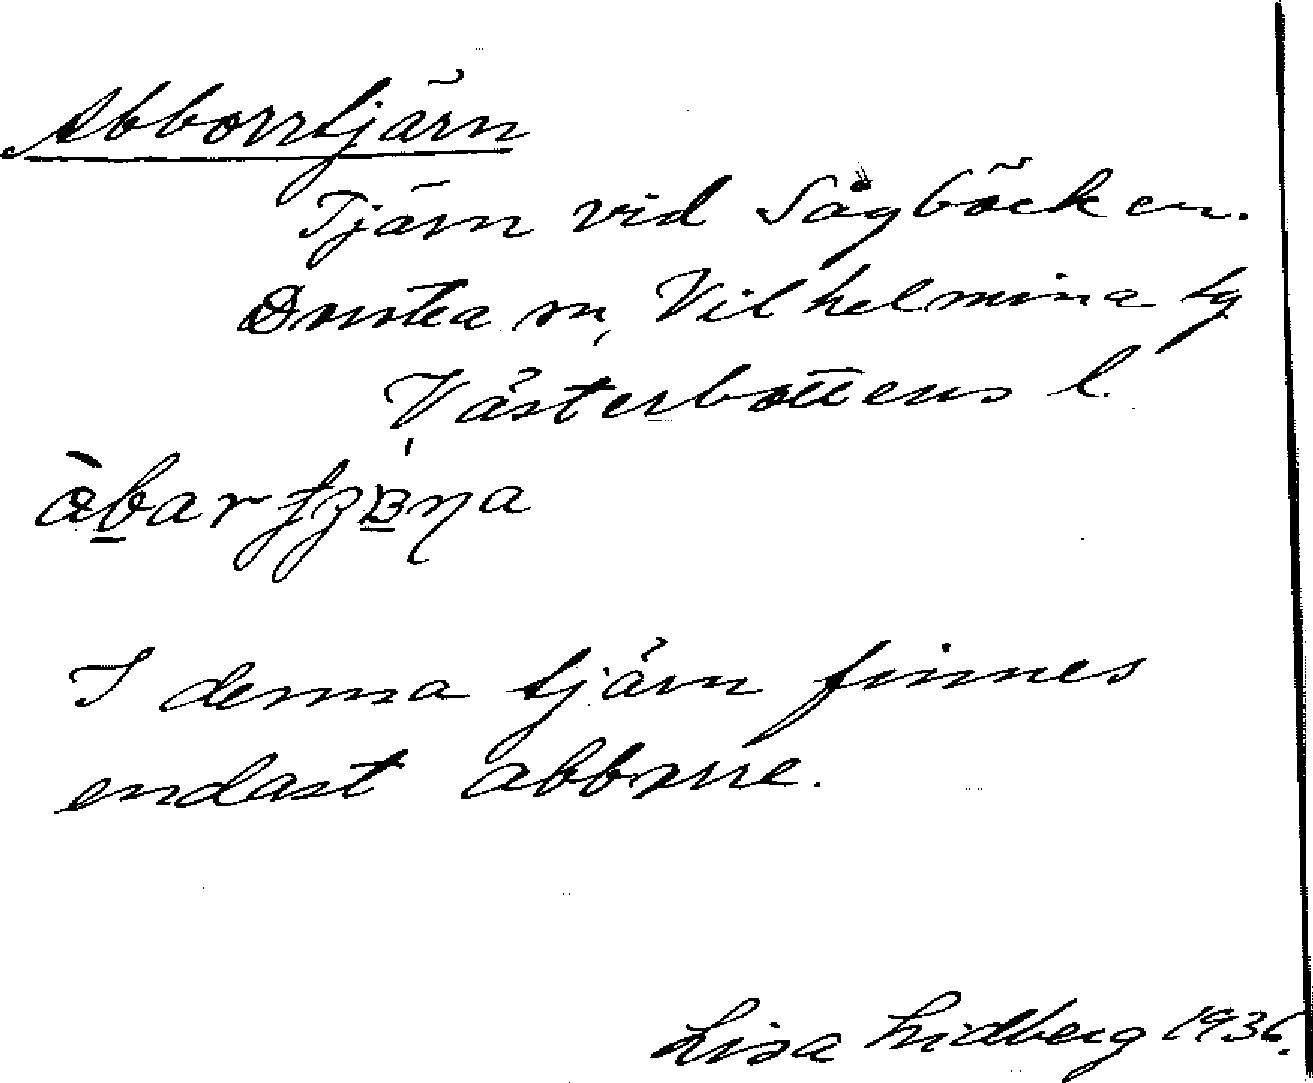 Abborrtjärn
Tjärn vid Sågbäcken.
Dorotea sn, Vilhelmina tg
Västerbottens l.
I denna tjärn finnes
endast abborre.
Lisa Lidberg 1936.